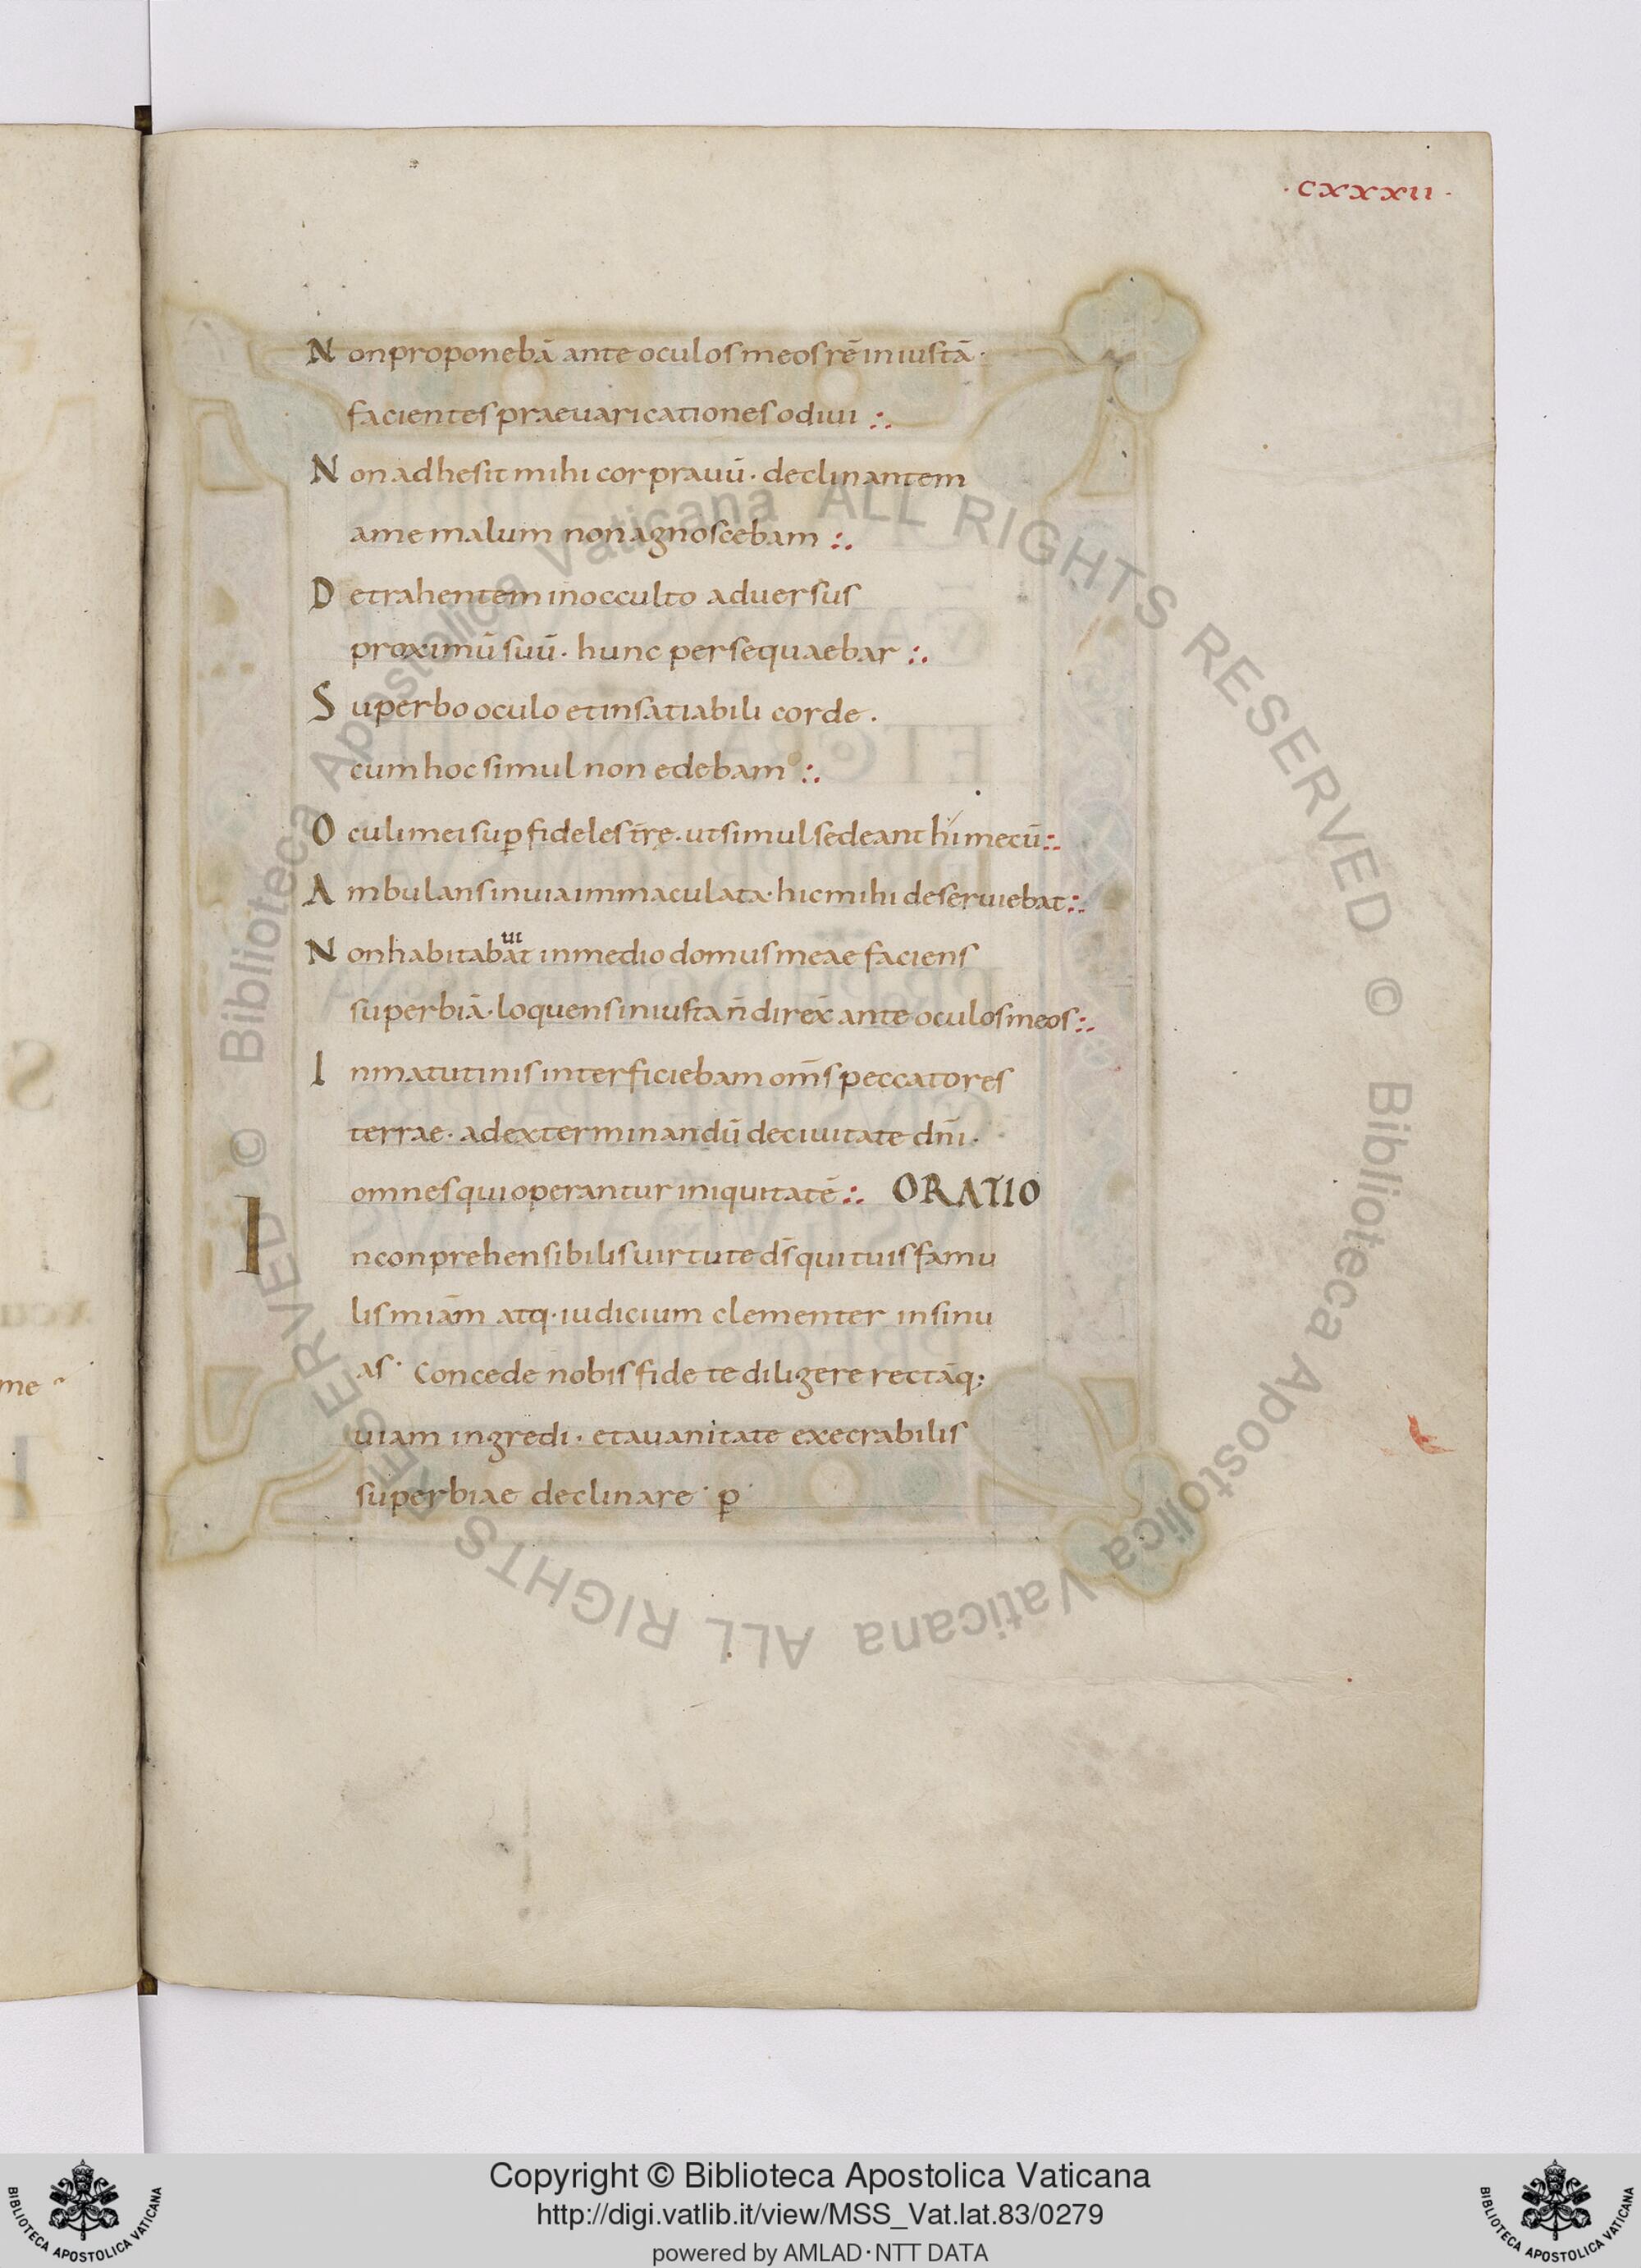 · cxxxii ·
Non proponebā ante oculos meos rē iniustā ·
facientes praeuaricationes odiui :.
Non adhesit mihi cor prauū · declinantem
a me malum non agnoscebam :.
Detrahentem in occulto aduersus
proximū suū · hunc persequaebar :.
Superbo oculo et insatiabili corde .
cum hoc simul non edebam :.
Oculi mei sup̲ fideles tr̄ę · ut simul sedeant hi mecū :.
Ambulans in uia immaculata · hic mihi deseruiebat :.
ui
Non habitabat in medio domus meae faciens
superbiā · loquens iniusta n̄ direx̄ ante oculos meos :.
In matutinis interficiebam om̄s peccatores
terrae · ad exterminandū de ciuitate dn̄i ·
omnes qui operantur iniquitatē :. ORATIO
Inconprehensibilis uirtute d̄s qui tuis famu
lis miām atq · iudicium clementer insinu
as · Concede nobis fide te diligere rectāq;
uiam ingredi · et a uanitate execrabilis
superbiae declinare · p̲
me
Copyright © Biblioteca Apostolica Vaticana
http://digi.vatlib.it/view/MSS_Vat.lat.83/0279
powered by AMLAD·NTT DATA
BIBLIOTECA APOSTOLICA VATICANA
BIBLIOTECA APOSTOLICA VATICANA
© Biblioteca Apostolica Vaticana ALL RIGHTS RESERVED
© Biblioteca Apostolica Vaticana ALL RIGHTS RESERVED